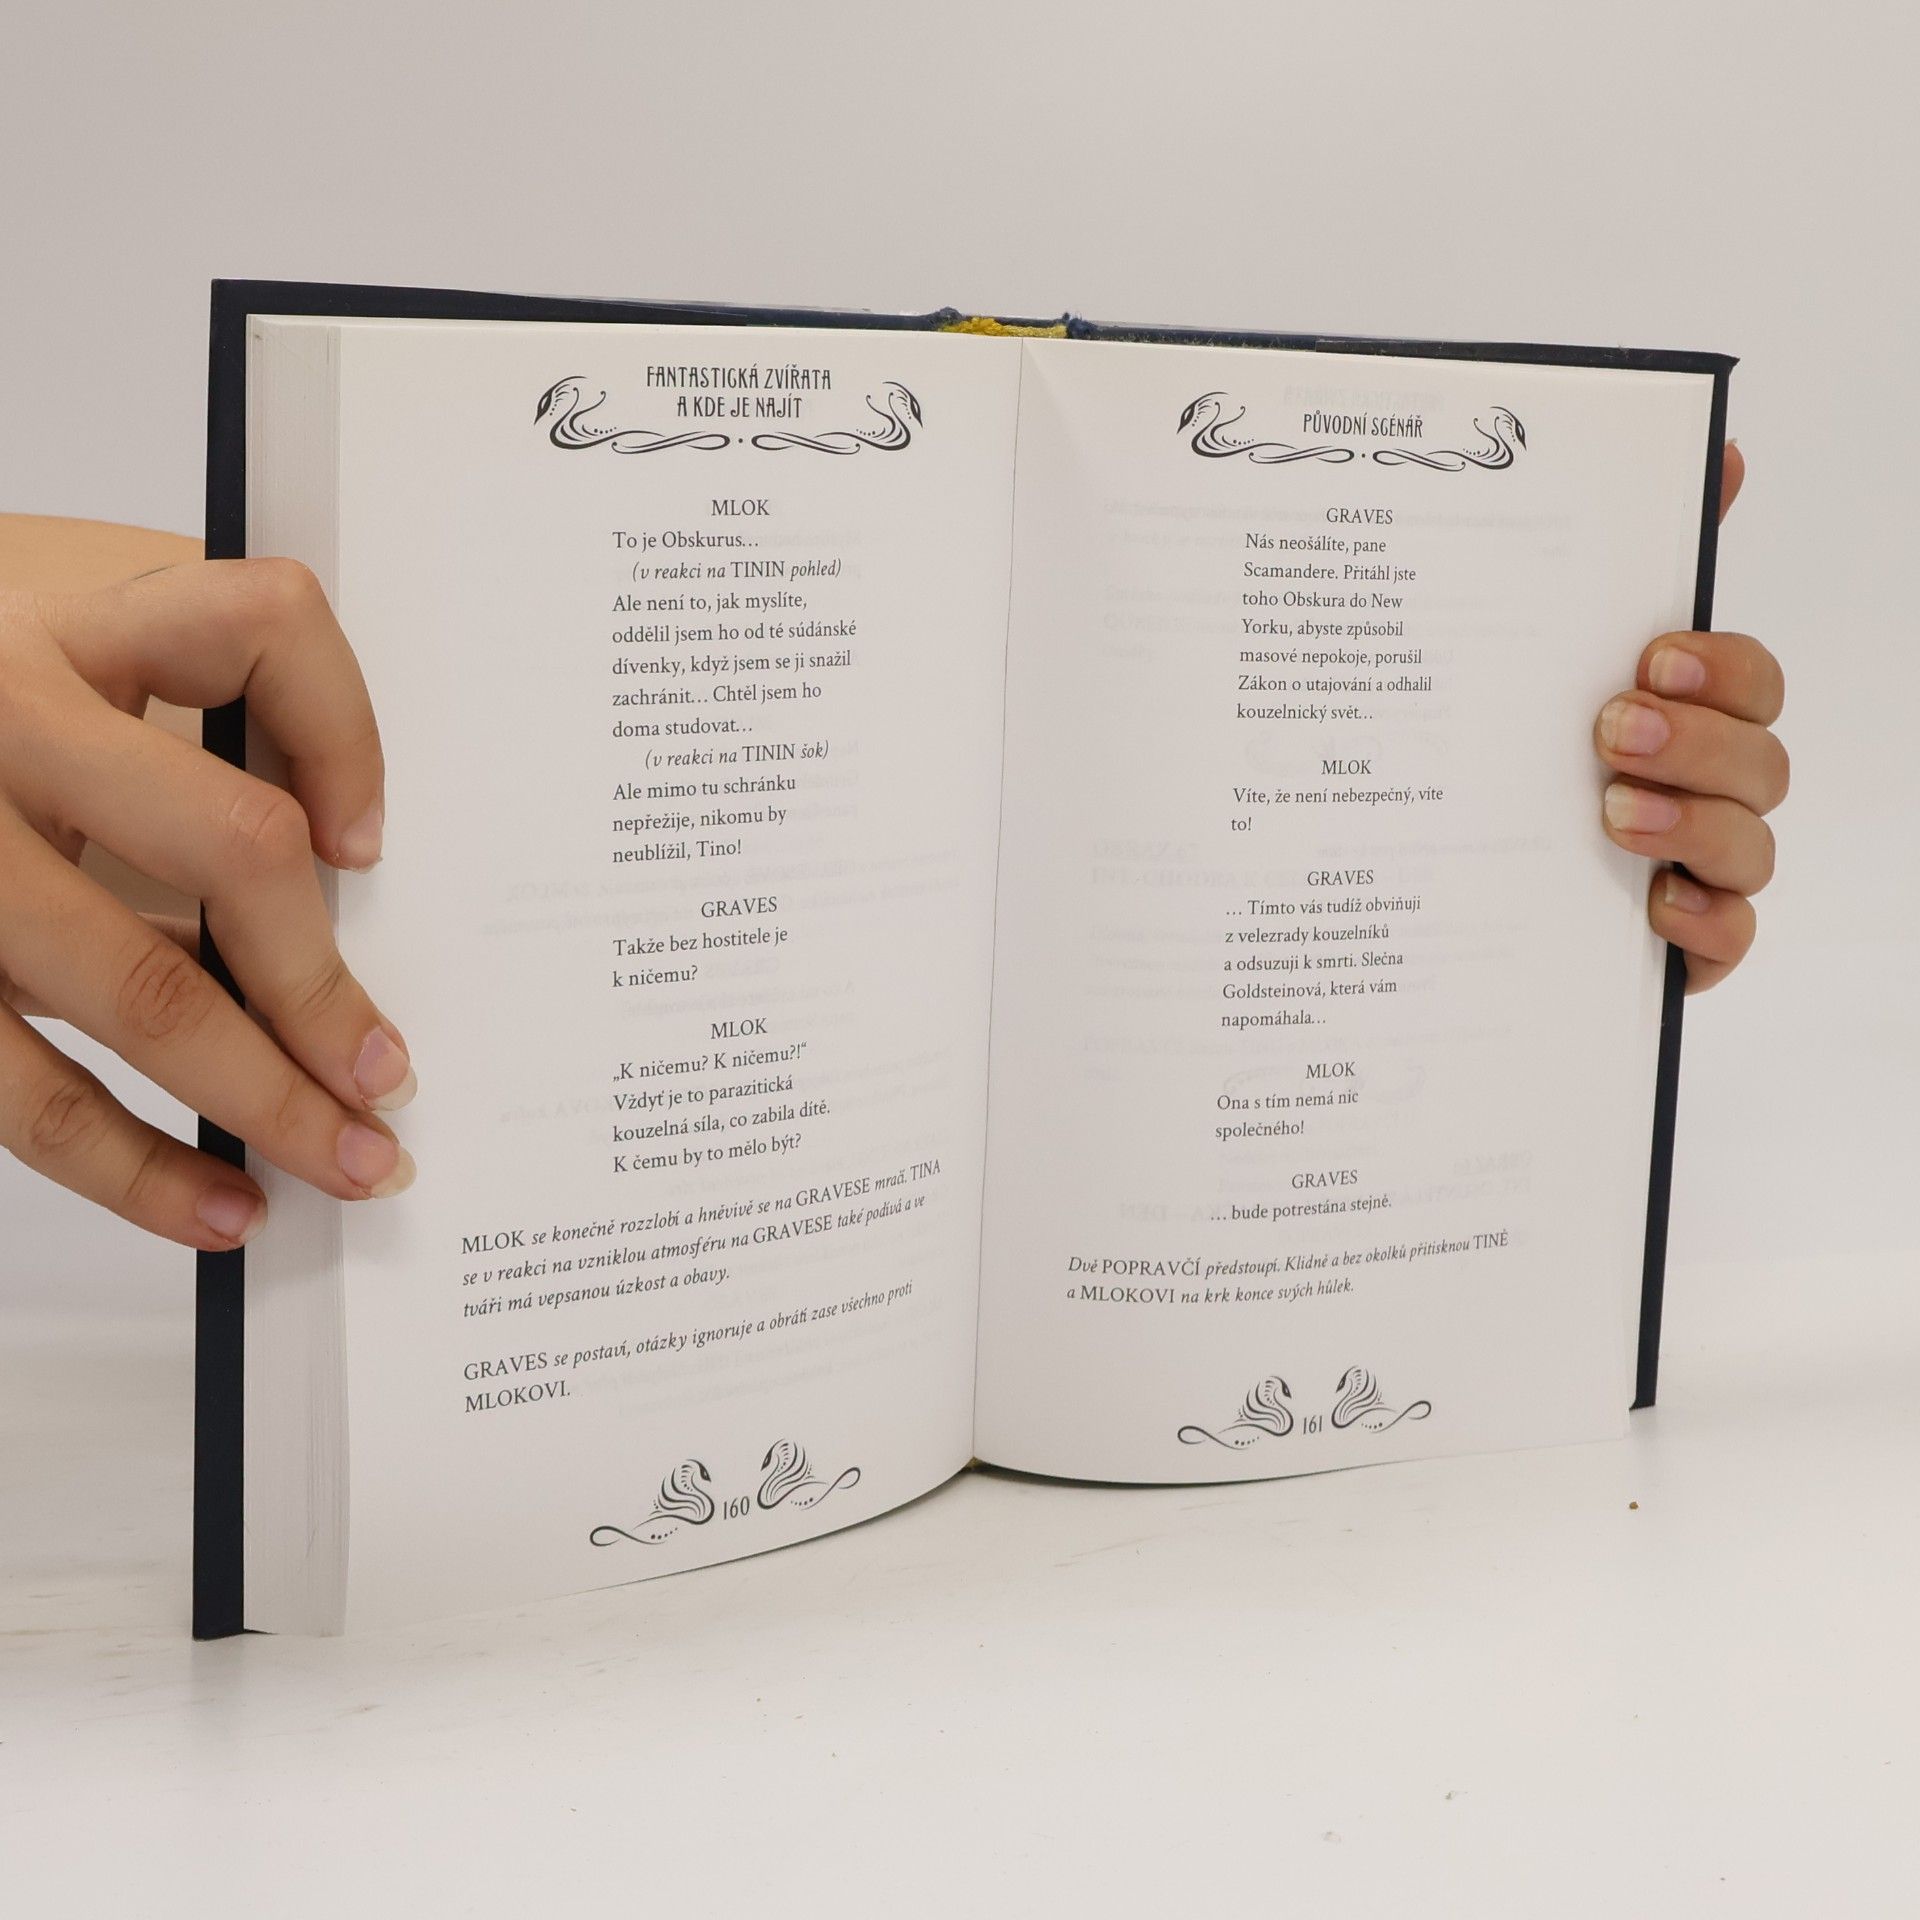 FANTASTICKÁ ZVÍŘATA
A KDE JE NAJÍT
MLOK
To je Obskurus…
(v reakci na TININ pohled)
Ale není to, jak myslíte,
oddělil jsem ho od té súdánské
dívenky, když jsem se ji snažil
zachránit… Chtěl jsem ho
doma studovat…
(v reakci na TININ šok)
Ale mimo tu schránku
nepřežije, nikomu by
neublížil, Tino!
GRAVES
Takže bez hostitele je
k ničemu?
MLOK
„K ničemu? K ničemu?!“
Vždyť je to parazitická
kouzelná síla, co zabila dítě.
K čemu by to mělo být?
MLOK se konečně rozzlobí a hněvivě se na GRAVESE mračí. TINA
se v reakci na vzniklou atmosféru na GRAVESE také podívá a ve
tváři má vepsanou úzkost a obavy.
GRAVES se postaví, otázky ignoruje a obrátí zase všechno proti
MLOKOVI.
160
PŮVODNÍ SCÉNÁŘ
GRAVES
Nás neošálíte, pane
Scamandere. Přitáhl jste
toho Obskura do New
Yorku, abyste způsobil
masové nepokoje, porušil
Zákon o utajování a odhalil
kouzelnický svět…
MLOK
Víte, že není nebezpečný, víte
to!
GRAVES
… Tímto vás tudíž obviňuji
z velezrady kouzelníků
a odsuzuji k smrti. Slečna
Goldsteinová, která vám
napomáhala…
MLOK
Ona s tím nemá nic
společného!
GRAVES
… bude potrestána stejně.
Dvě POPRAVČÍ předstoupí. Klidně a bez okolků přitisknou TINĚ
a MLOKOVI na krk konce svých hůlek.
161